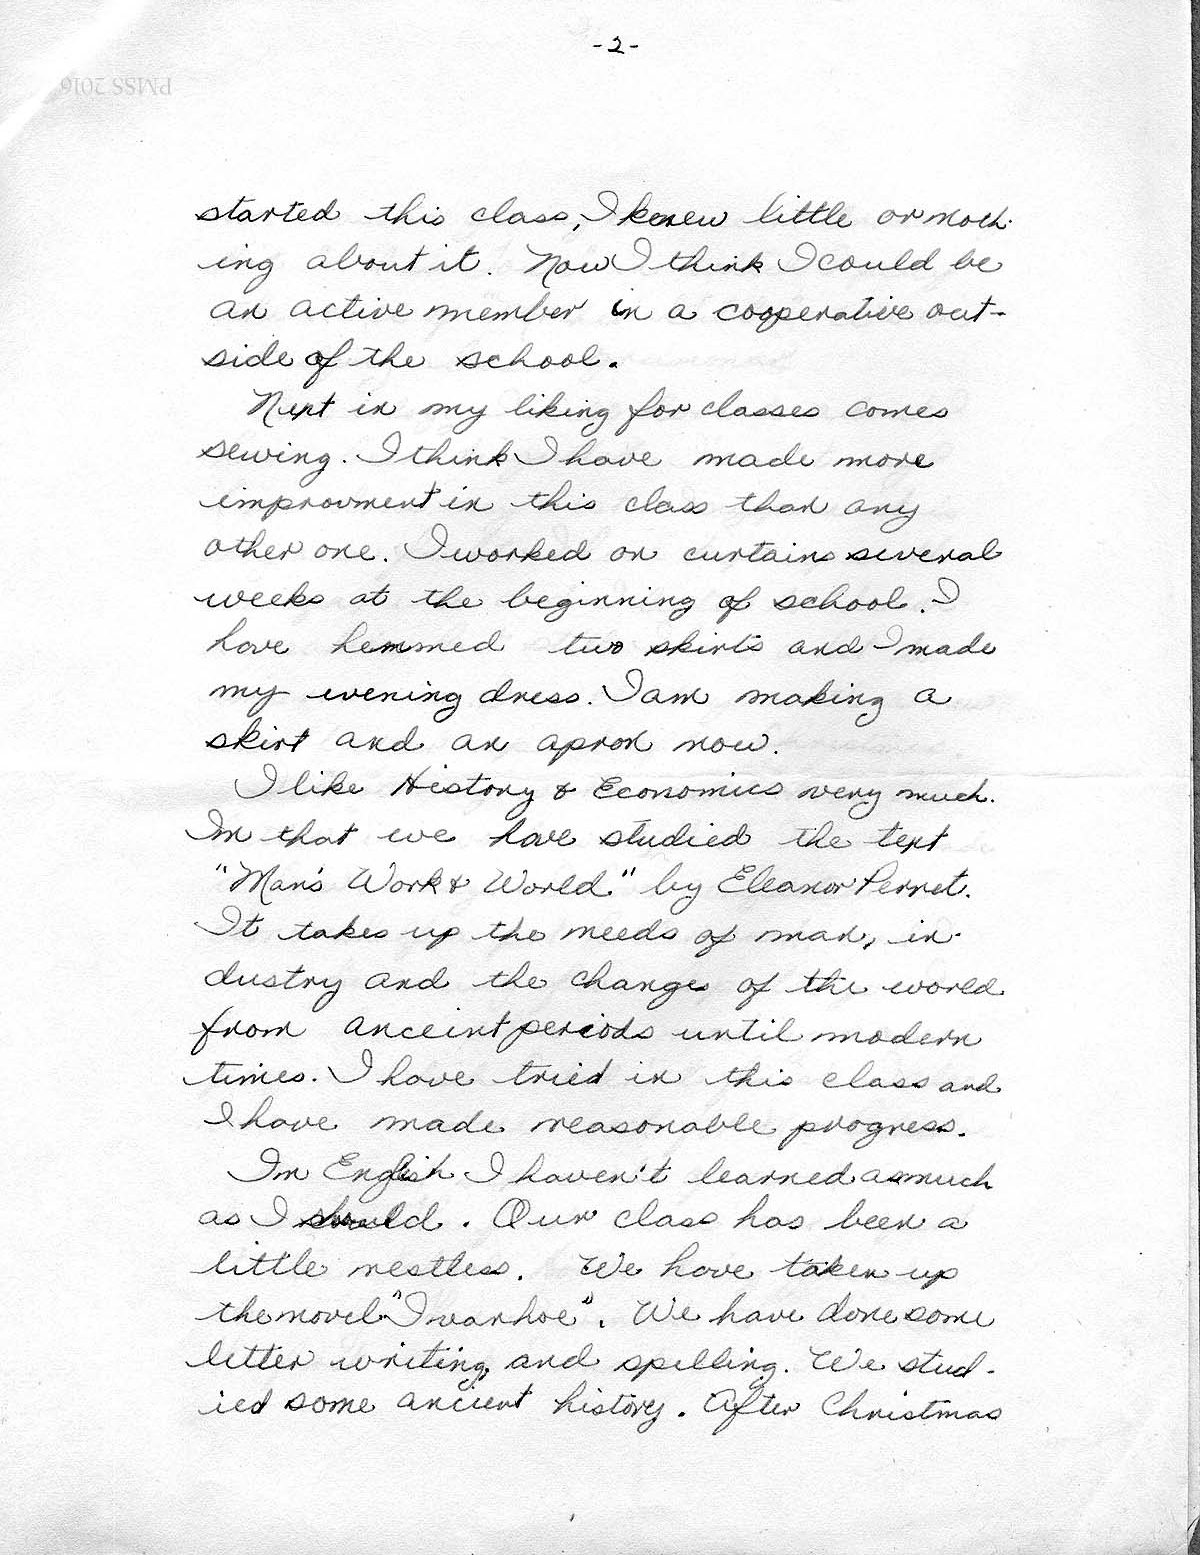 -2-
PMSS 2016
started this class, I knew little or noth-
ing about it. Now I think I could be
an active member in a cooperative out-
side of the school.
Next in my liking for classes comes
sewing. I think I have made more
improvment in this class than any
other one. I worked on curtains several
weeks at the beginning of school. I
have hemmed two skirts and I made
my evening dress. I am making a
skirt and an apron now.
I like History & Economics very much.
In that we have studied the text
"Man's Work & World" by Eleanor Perret.
It takes up the needs of man, in-
dustry and the changes of the world
from anceint periods until modern
times. I have tried in this class and
I have made reasonable progress.
In English I haven't learned as much
as I should. Our class has been a
little restless. We have taken up
the novel "Ivanhoe". We have done some
letter writing, and spelling. We stud-
ied some ancient history. After Christmas